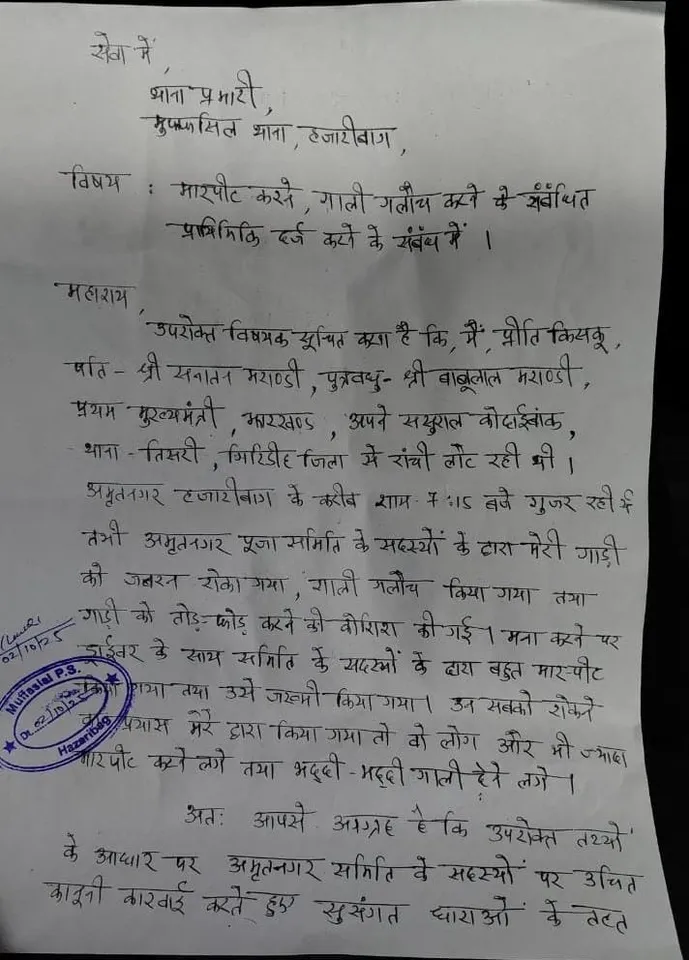 सेवा में,
थाना प्रभारी,
मुफ्फसिल थाना, हजारीबाग,
विषय : मारपीट करने, गाली गलौच करने के संबंधित
प्राथमिकि दर्ज करने के संबंध में ।
महाशय,
उपरोक्त विषयक सूचित करना है कि, मैं, प्रीति किसकू,
पति - श्री सनातन मराण्डी, पुत्रवधु - श्री बाबूलाल मराण्डी,
प्रथम मुख्यमंत्री, झारखण्ड, अपने ससुराल कोदाईबांक,
थाना - तिसरी, गिरिडीह जिला से रांची लौट रही थी ।
अमृतनगर हजारीबाग के करीब शाम 7:15 बजे गुजर रही
तभी अमृतनगर पूजा समिति के सदस्यों के द्वारा मेरी गाड़ी
को जबरन रोका गया, गाली गलौच किया गया तथा
गाड़ी को तोड़-फोड़ करने की कोशिश की गई । मना करने पर
02/10/25
ड्राईवर के साथ समिति के सदस्यों के द्वारा बहुत मार-पीट
किया गया तथा उसे जख्मी किया गया । उन सबको रोकने
प्रयास मेरे द्वारा किया गया तो वो लोग और भी ज्यादा
मारपीट करने लगे तथा भद्दी-भद्दी गाली देने लगे ।
Muffasial P.S.
Dt. 02/10/25
Hazaribag
अतः आपसे आग्रह है कि उपरोक्त तथ्यों
के आधार पर अमृतनगर समिति के सदस्यों पर उचित
कानूनी कारवाई करते हुए सुसंगत धाराओं के तहत